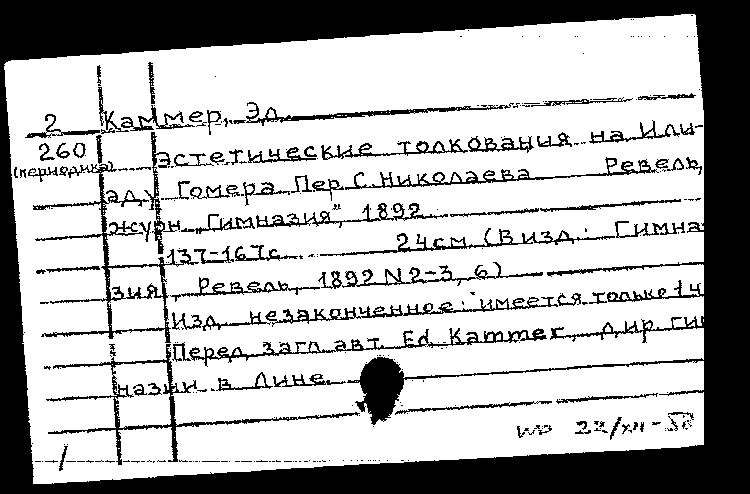 2 Каммер, Эд.
260 эстетические толкования на Или-
(периодика) аду Гомера. Пер. С. Николаева Ревель,
журн. „Гимназия", 1892
137-167 с. 24 см (В изд.: Гимна-
зия, Ревель, 1892 N 2-3, 6)
Изд. незаконченное: имеется только 1 ч
Перед загл. авт. Ed. Kammer, дир. гим
назии в Лине.
22/XII-58